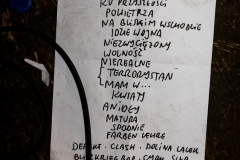 KU PRZYSZŁOŚCI
POWIETRZA
NA BLISKIM WSCHODZIE
IDZIE WOJNA
NIEZWYCIĘŻONY
WOLNOŚĆ
NIEREALNE
TERRORYSTAN
MAM W...
KWIATY
ANIOŁY
MATURA
SPODNIE
FARBEN LEHRE
DEFEKT - CLASH - DOLINA LALEK
BLITZKRIEG BOP -